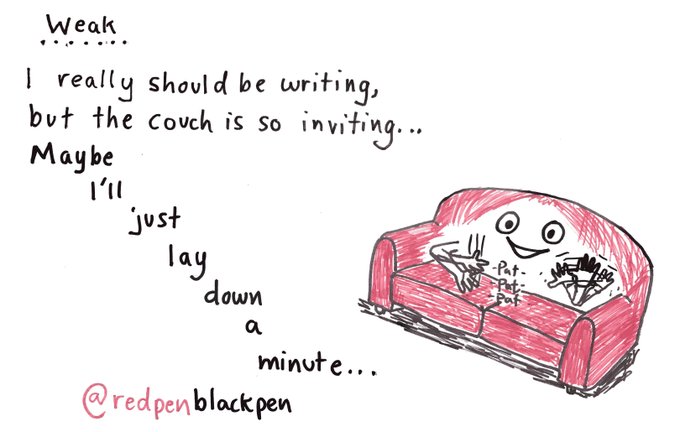 Weak
I really should be writing,
but the couch is so inviting...
Maybe
I'll
just
lay
down
a
minute...
-Pat-
-Pat-
-Pat
@redpenblackpen